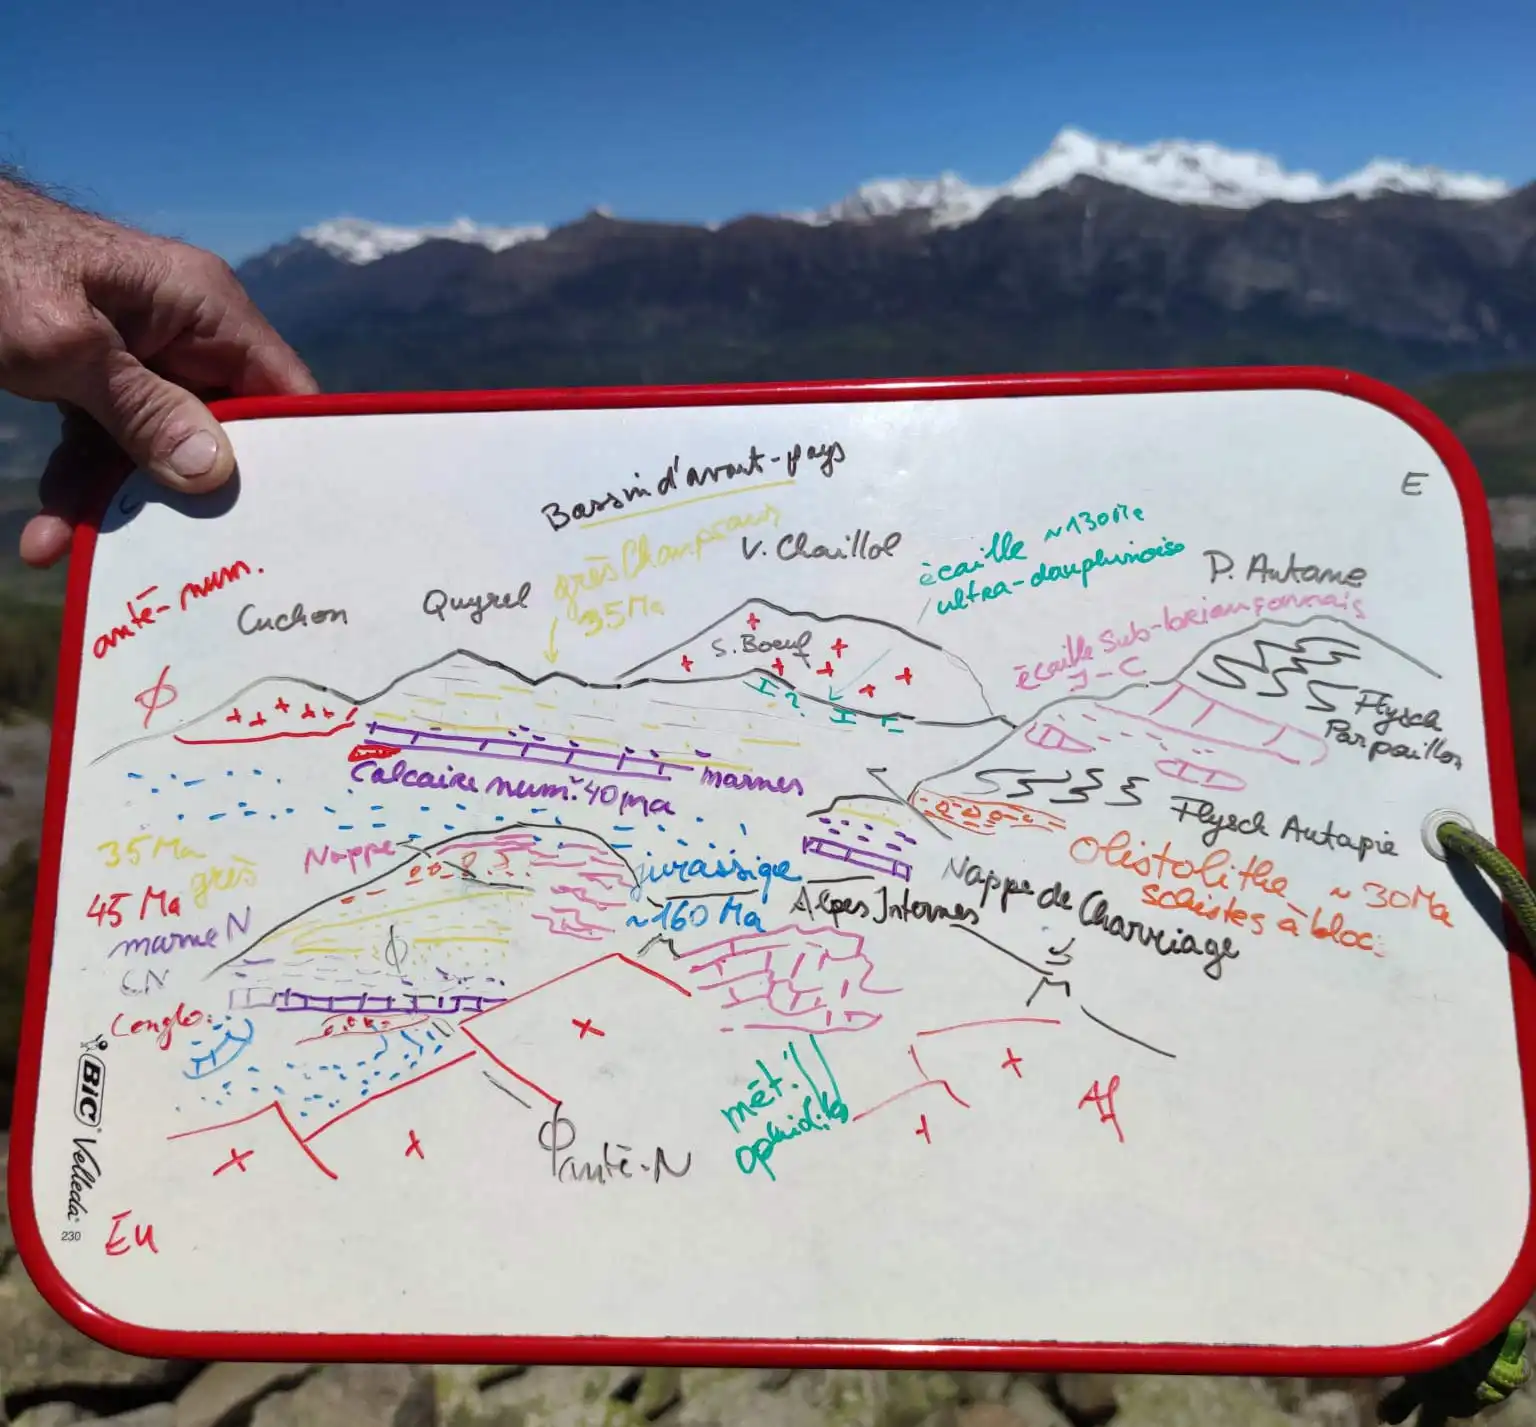 Bassin d'avant-pays
E
grès Champsaur
35 Ma
V. Chaillol
écaille ~130Ma
ultra-dauphinoise
P. Autane
anté-num.
Cuchon
Queyrel
S. Boeuf
écaille Sub-briançonnais
J-C
Flysch
Parpaillon
ϕ
?
Calcaire num. 40 ma
marnes
Flysch Autapie
35 Ma
grès
Nappe
jurassique
~160 Ma
Alpes Internes
Nappe de Charriage
Olistolithe ~30Ma
schistes à bloc
45 Ma
marne N
CN
Conglo.
ϕ
M
mét.
ophiolites
Af
ϕ anté-N
Eu
BIC Velleda
230